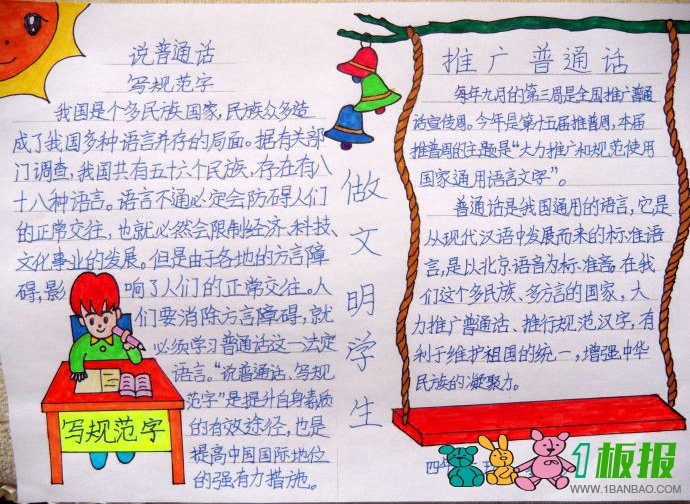 说普通话
写规范字
我国是个多民族国家,民族众多造
成了我国多种语言并存的局面。据有关部
门调查,我国共有五十六个民族,存在有八
十八种语言。语言不通必定会防碍人们
的正常交往,也就必然会限制经济、科技、
文化事业的发展。但是由于各地的方言障
碍,影响了人们的正常交往。人
们要消除方言障碍,就
必须学习普通话这一法定
语言。“说普通话、写规
范字”是提升自身素质
的有效途径,也是
提高中国国际地位
的强有力措施。
写规范字
做
文
明
学
生
推广普通话
每年九月的第三周是全国推广普通
话宣传周。今年是第十五届推普周,本届
推普周的主题是“大力推广和规范使用
国家通用语言文字”。
普通话是我国通用的语言,它是
从现代汉语中发展而来的标准语
言,是以北京语音为标准音。在我
们这个多民族、多方言的国家,大
力推广普通话、推行规范汉字,有
利于维护祖国的统一,增强中华
民族的凝聚力。
四年
1板报
WWW.1BANBAO.COM